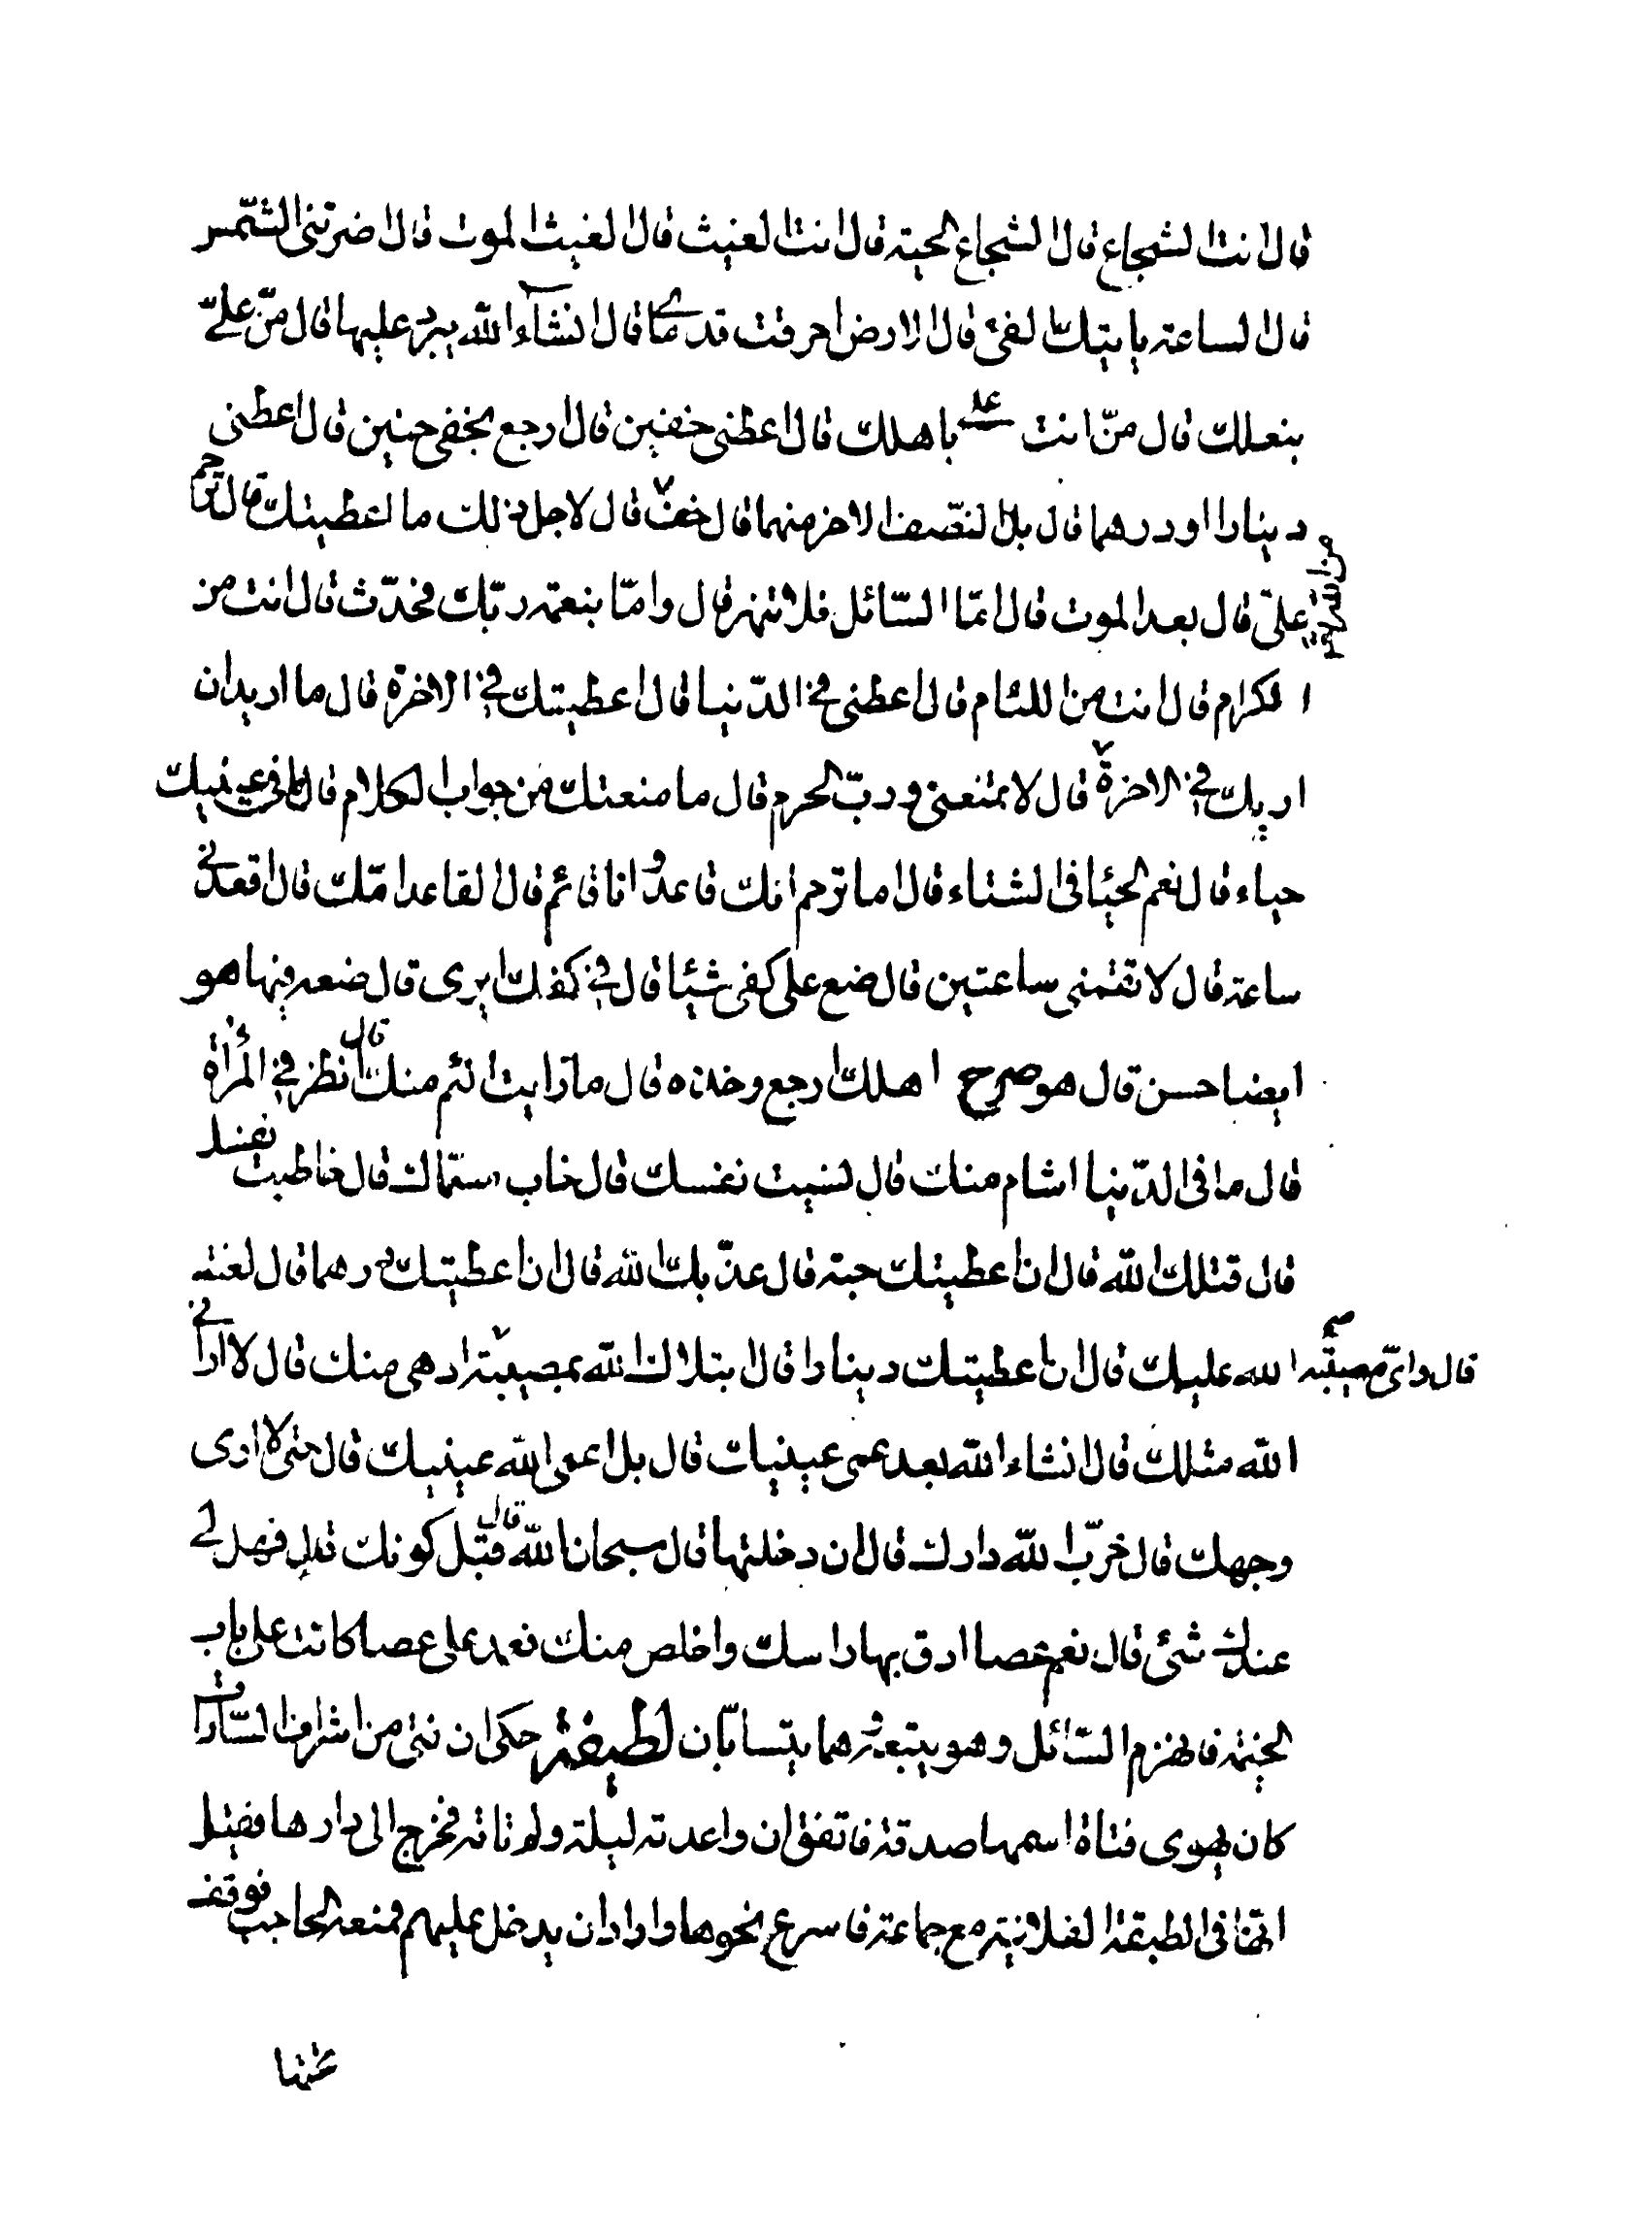 قال انت الشجاع قال الشجاع الحية قال انت الغيث قال الغيث الموت قال اضرتنى الشمس
قال الساعة ياتيك الفئ قال الارض احرقت قدماى قال انشاء الله يبرد عليها قال منّ علىّ
بنعلك قال منّ انت على باهلك قال اعطنى خفين قال ارجع بخفى حنين قال اعطنى
دينارا او درهما قال بل النصف الاخر منهما قال خف قال لاجل ذلك ما اعطيتك قال ترحم
علىّ قال بعد الموت قال امّا السّائل فلا تنهر قال وامّا بنعمة ربّك فحدّث قال انت من
الكرام قال انت من اللئام قال اعطنى فى الدّنيا قال اعطيتك فى الاخرة قال ما اريد ان
اريك فى الاخرة قال لا تمنعنى وربّ الحرم قال ما منعتك من جواب الكلام قال ما فى عينيك
حياء قال نعم الحيا فى الشتاء قال اما ترحم انك قاعد وانا قائم قال القاعد امّك قال اقعدنى
ساعة قال لا تقمنى ساعتين قال ضع على كفى شيئا قال فى كفك ايرى قال ضعه فيها هو
ايضا حسن قال هو صرح اهلك ارجع وخذه قال ما رايت الئم منك قال انظر فى المرأة
قال ما فى الدّنيا اشام منك قال نسيت نفسك قال خاب سمّاك قال خاطبت نفسك
قال قتلك الله قال ان اعطيتك حبة قال عذّبك الله قال ان اعطيتك درهما قال لعنة
الله عليك قال ان اعطيتك دينارا قال ابتلاك الله بمصيبة قال واىّ مصيبة ادهى منك قال لا ارانى
الله مثلك قال انشاء الله بعد عمى عينيك قال بل اعمى الله عينيك قال حتى لا ارى
وجهك قال خرّب الله دارك قال ان دخلتها قال سبحان الله قال قبل كونك قال فهل لى
عندك شئ قال نعم عصا ادق بها راسك واخلص منك فعمد على عصا كانت على باب
الخيمة فانهزم السّائل وهو يتبعه وهما يتسابّان لطيفة حكى ان فتى من اشراف السّادات
كان يهوى فتاة اسمها صدقة فاتفق ان واعدته ليلة ولم تاته فخرج الى دارها فقيل
انها فى الطبقة الفلانية مع جماعة فاسرع نحوها واراد ان يدخل عليهم فمنعه الحاجب فوقف